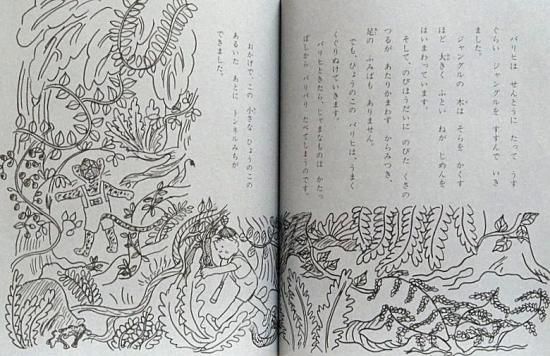 バリヒは せんとうに たって うす
ぐらい ジャングルを すすんで いき
ました。
ジャングルの 木は そらを かくす
ほど 大きく ふとい ねが じめんを
はいまわっています。
そして、のびほうだいに のびた くさの
つるが あたりかまわず からみつき、
足の ふみばも ありません。
でも、ひょうのこの バリヒは、うまく
くぐりぬけていきます。
バリヒときたら、じゃまなものは かたっ
ぱしから バリバリ たべてしまうのです。
おかげで、この 小さな ひょうのこの
あるいた あとに トンネルみちが
できました。